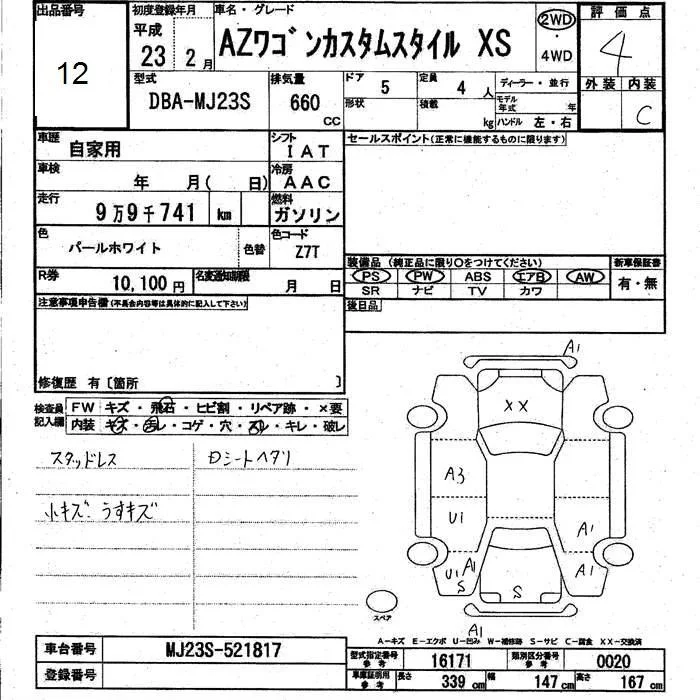 出品番号
12
初度登録年月
平成
23 2月
車名・グレード
AZワゴンカスタムスタイル XS
2WD
・
4WD
評価点
4
外装 内装
C
型式
DBA-MJ23S
排気量
660
CC
ドア
5
定員
4 人
形状
積載
kg
ディーラー・並行
モデル年式 年
ハンドル 左・右
車歴
自家用
シフト
IAT
車検
年 月( 日)
冷房
AAC
走行
9万9千741 km
燃料
ガソリン
色
パールホワイト
色替
色コード
Z7T
R券
10,100円
名変通知期限
月 日
セールスポイント(正常に機能するものに限ります)
装備品(純正品に限り○をつけてください)
新車保証書
PS PW ABS エアB AW
SR ナビ TV カワ
有・無
後日品
注意事項申告欄(不具合内容等は具体的に記入して下さい)
修復歴 有〔箇所 〕
検査員
記入欄
FW キズ・飛石・ヒビ割・リペア跡・×要
内装 キズ・汚レ・コゲ・穴・スレ・キレ・破レ
スタッドレス
Dシートヘタリ
小キズ、うすキズ
A1
XX
A3
U1
A1
U1
A1
S
S
A1
A1
スペア
A-キズ E-エクボ U-凹み W-補修跡 S-サビ C-腐食 XX-交換済
車台番号
MJ23S-521817
登録番号
型式指定番号
参考
16171
類別区分番号
参考
0020
車庫証明用
参考
長さ
339 cm
幅
147 cm
高さ
167 cm